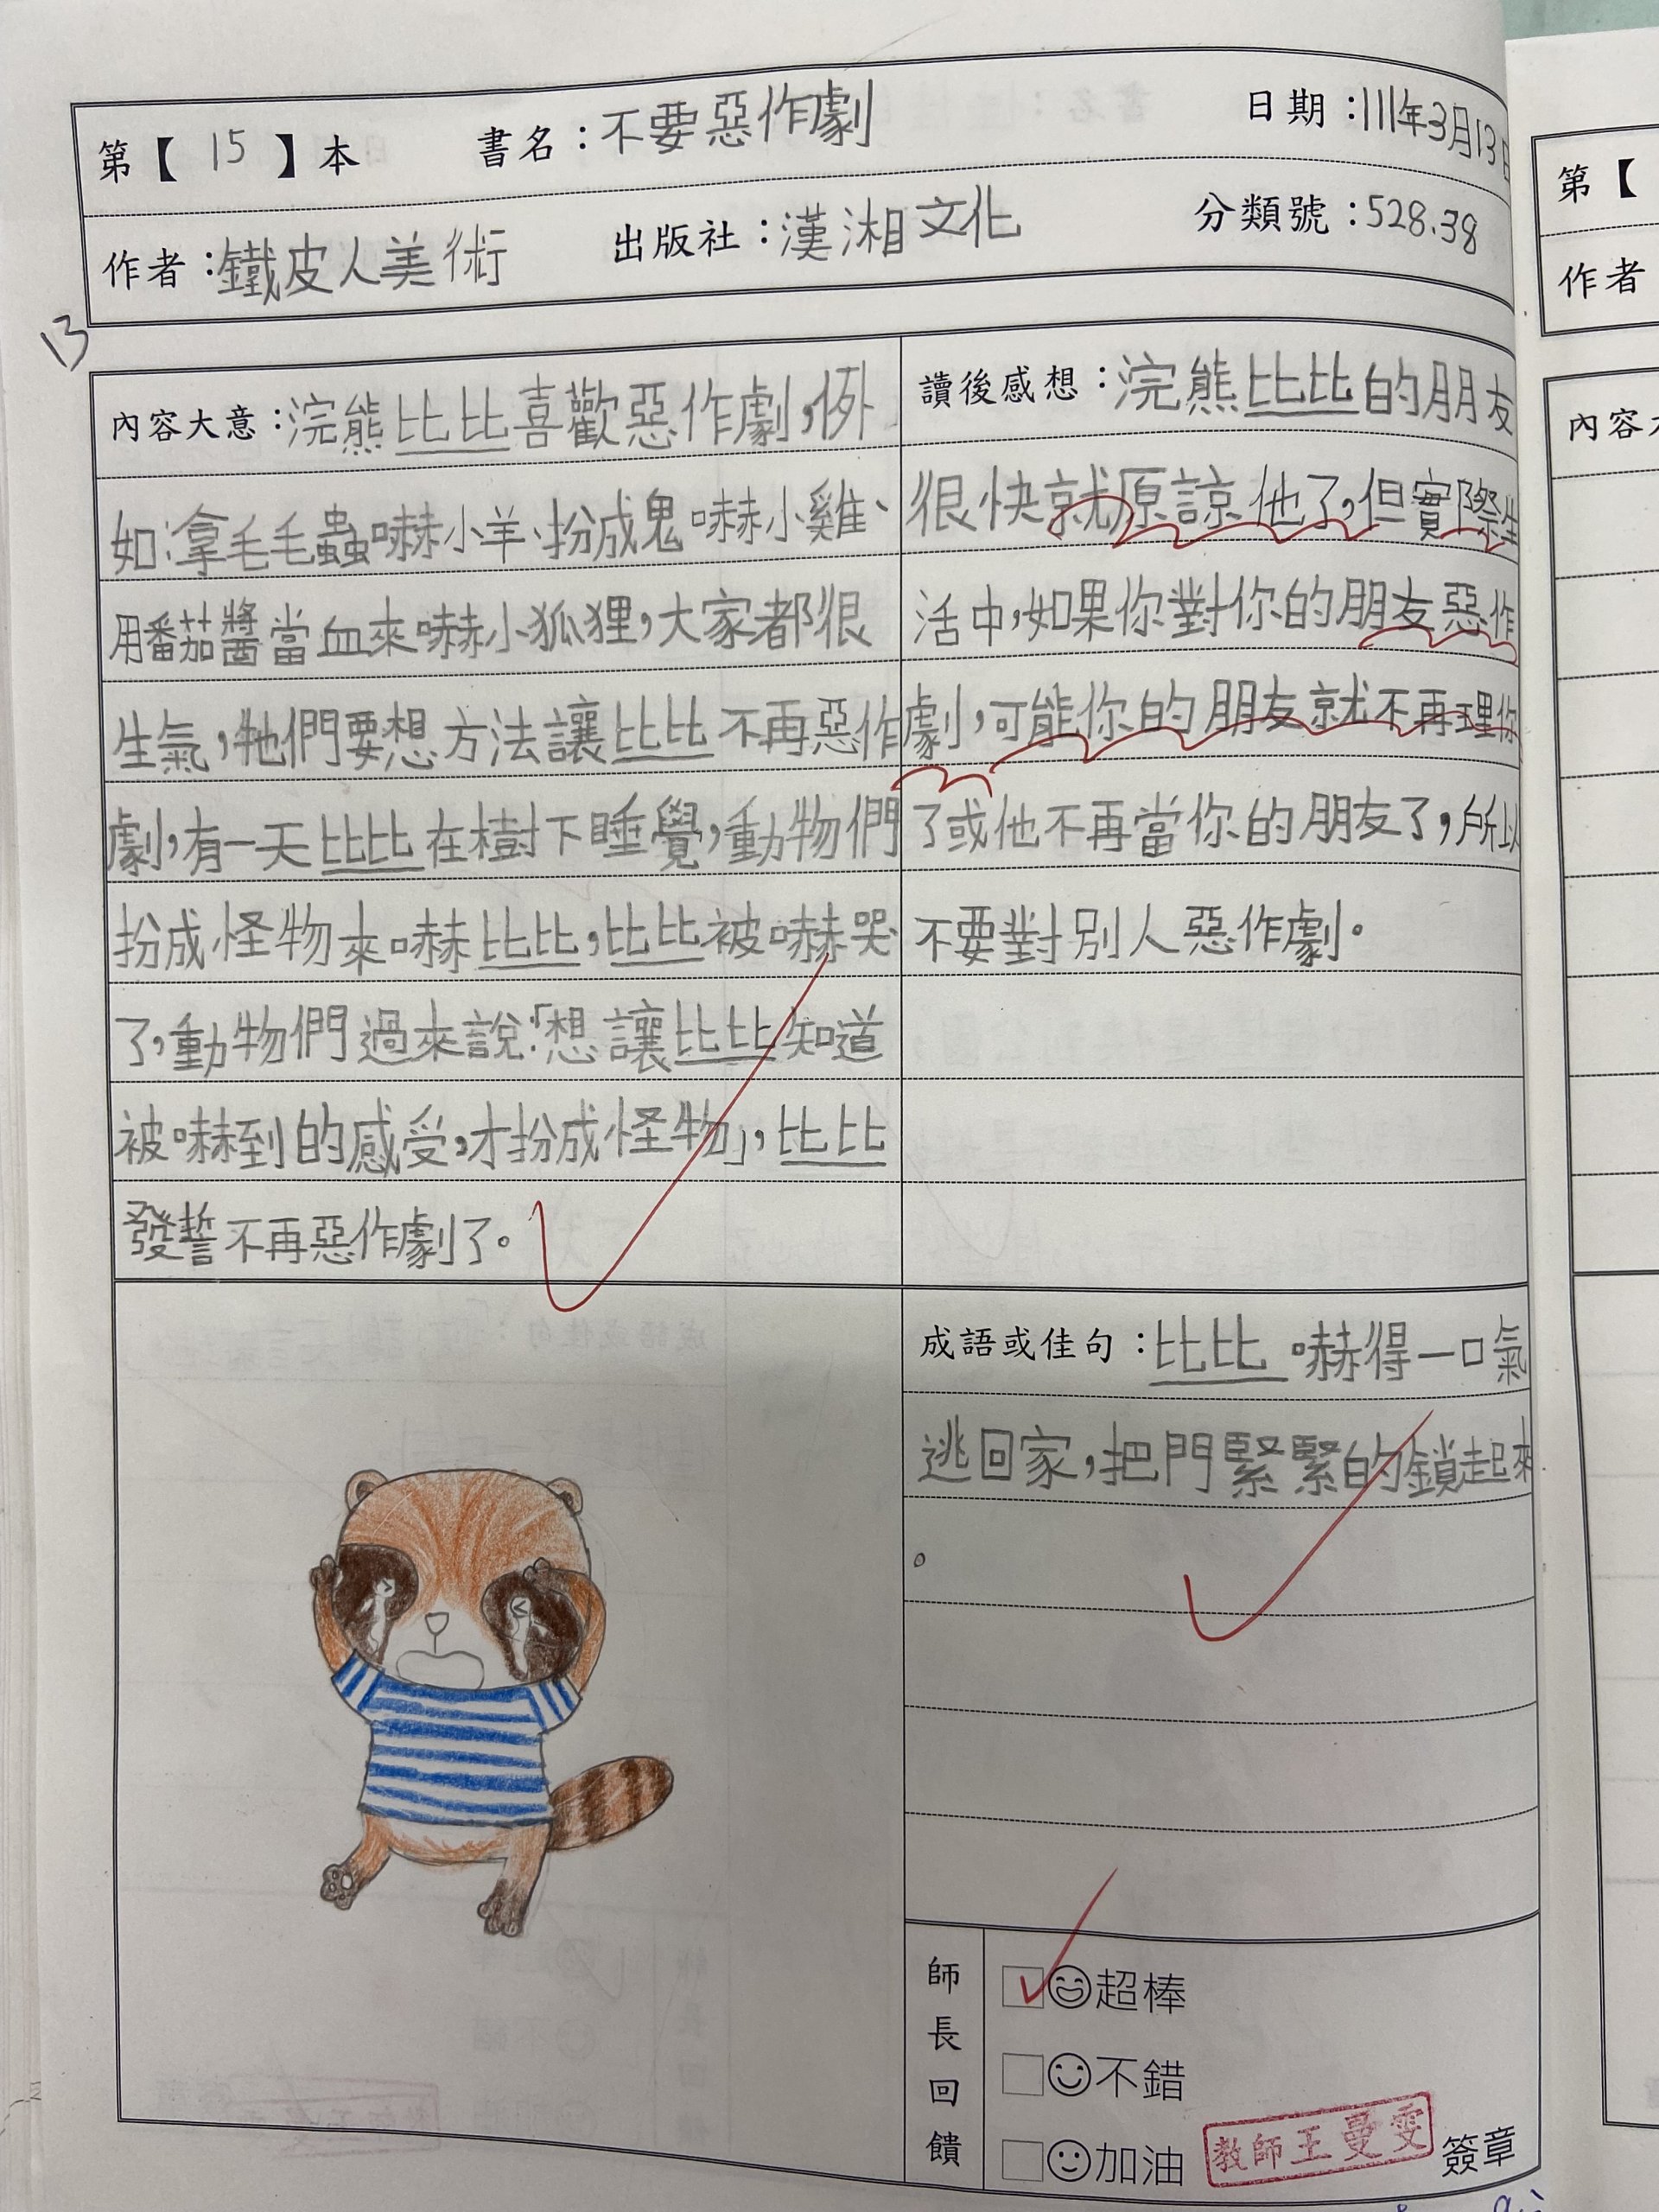 第【 15 】本 書名:不要惡作劇 日期:111年3月13日
作者:鐵皮人美術 出版社:漢湘文化 分類號:528.38
13
內容大意:浣熊比比喜歡惡作劇,例
如:拿毛毛蟲嚇小羊、扮成鬼嚇小雞、
用番茄醬當血來嚇小狐狸,大家都很
生氣,牠們要想方法讓比比不再惡作
劇,有一天比比在樹下睡覺,動物們
扮成怪物來嚇比比,比比被嚇哭
了,動物們過來說:「想讓比比知道
被嚇到的感受,才扮成怪物」,比比
發誓不再惡作劇了。
讀後感想:浣熊比比的朋友
很快就原諒他了,但實際生
活中,如果你對你的朋友惡作
劇,可能你的朋友就不再理你
了或他不再當你的朋友了,所以
不要對別人惡作劇。
成語或佳句:比比嚇得一口氣
逃回家,把門緊緊的鎖起來
。
師長回饋
超棒
不錯
加油
教師王曼雯 簽章
第【
作者
內容